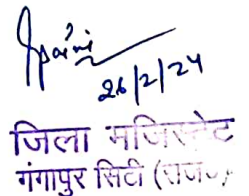 26/2/24
जिला मजिस्ट्रेट
गंगापुर सिटी (राज०)